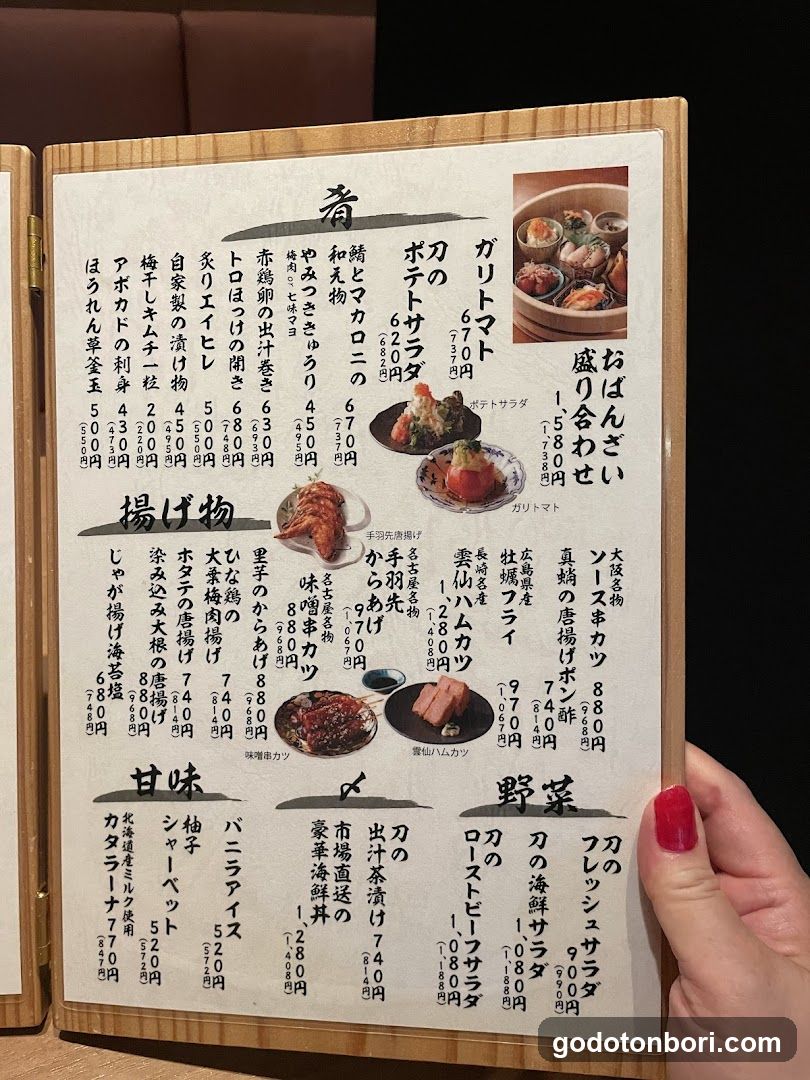 肴
おばんざい
盛り合わせ
1,580円
(1,738円)
ガリトマト
670円
(737円)
刀の
ポテトサラダ
620円
(682円)
鯖とマカロニの
和え物
670円
(737円)
やみつききゅうり
梅肉 or 七味マヨ
450円
(495円)
赤鶏卵の出汁巻き
630円
(693円)
トロほっけの開き
680円
(748円)
炙りエイヒレ
500円
(550円)
自家製の漬け物
450円
(495円)
梅干しキムチ一粒
200円
(220円)
アボカドの刺身
430円
(473円)
ほうれん草釜玉
500円
(550円)
ポテトサラダ
ガリトマト
揚げ物
手羽先唐揚げ
大阪名物
ソース串カツ
880円
(968円)
真蛸の唐揚げポン酢
740円
(814円)
広島県産
牡蠣フライ
970円
(1,067円)
長崎名産
雲仙ハムカツ
1,280円
(1,408円)
名古屋名物
手羽先
からあげ
970円
(1,067円)
名古屋名物
味噌串カツ
880円
(968円)
里芋のからあげ
880円
(968円)
ひな鶏の
大葉梅肉揚げ
740円
(814円)
ホタテの唐揚げ
740円
(814円)
染み込み大根の唐揚げ
880円
(968円)
じゃが揚げ海苔塩
680円
(748円)
味噌串カツ
雲仙ハムカツ
野菜
刀の
フレッシュサラダ
900円
(990円)
刀の海鮮サラダ
1,080円
(1,188円)
刀の
ローストビーフサラダ
1,080円
(1,188円)
〆
刀の
出汁茶漬け
740円
(814円)
市場直送の
豪華海鮮丼
1,280円
(1,408円)
甘味
バニラアイス
520円
(572円)
柚子
シャーベット
520円
(572円)
北海道産ミルク使用
カタラーナ
770円
(847円)
godotonbori.com